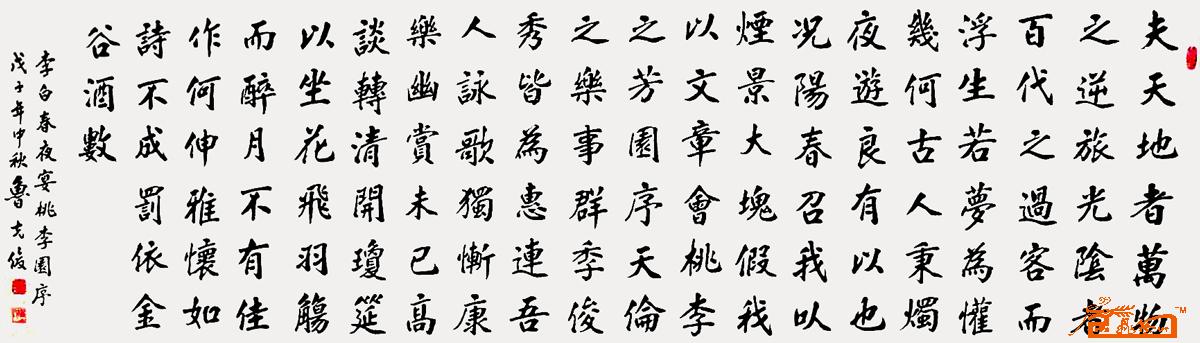 夫天地者萬物
之逆旅光陰者
百代之過客而
浮生若夢為懽
幾何古人秉燭
夜遊良有以也
况陽春召我以
煙景大塊假我
以文章會桃李
之芳園序天倫
之樂事群季俊
秀皆為惠連吾
人詠歌獨慚康
樂幽賞未已高
談轉清開瓊筵
以坐花飛羽觴
而醉月不有佳
作何伸雅懷如
詩不成罰依金
谷酒數
李白春夜宴桃李園序
戊子年中秋魯克俊